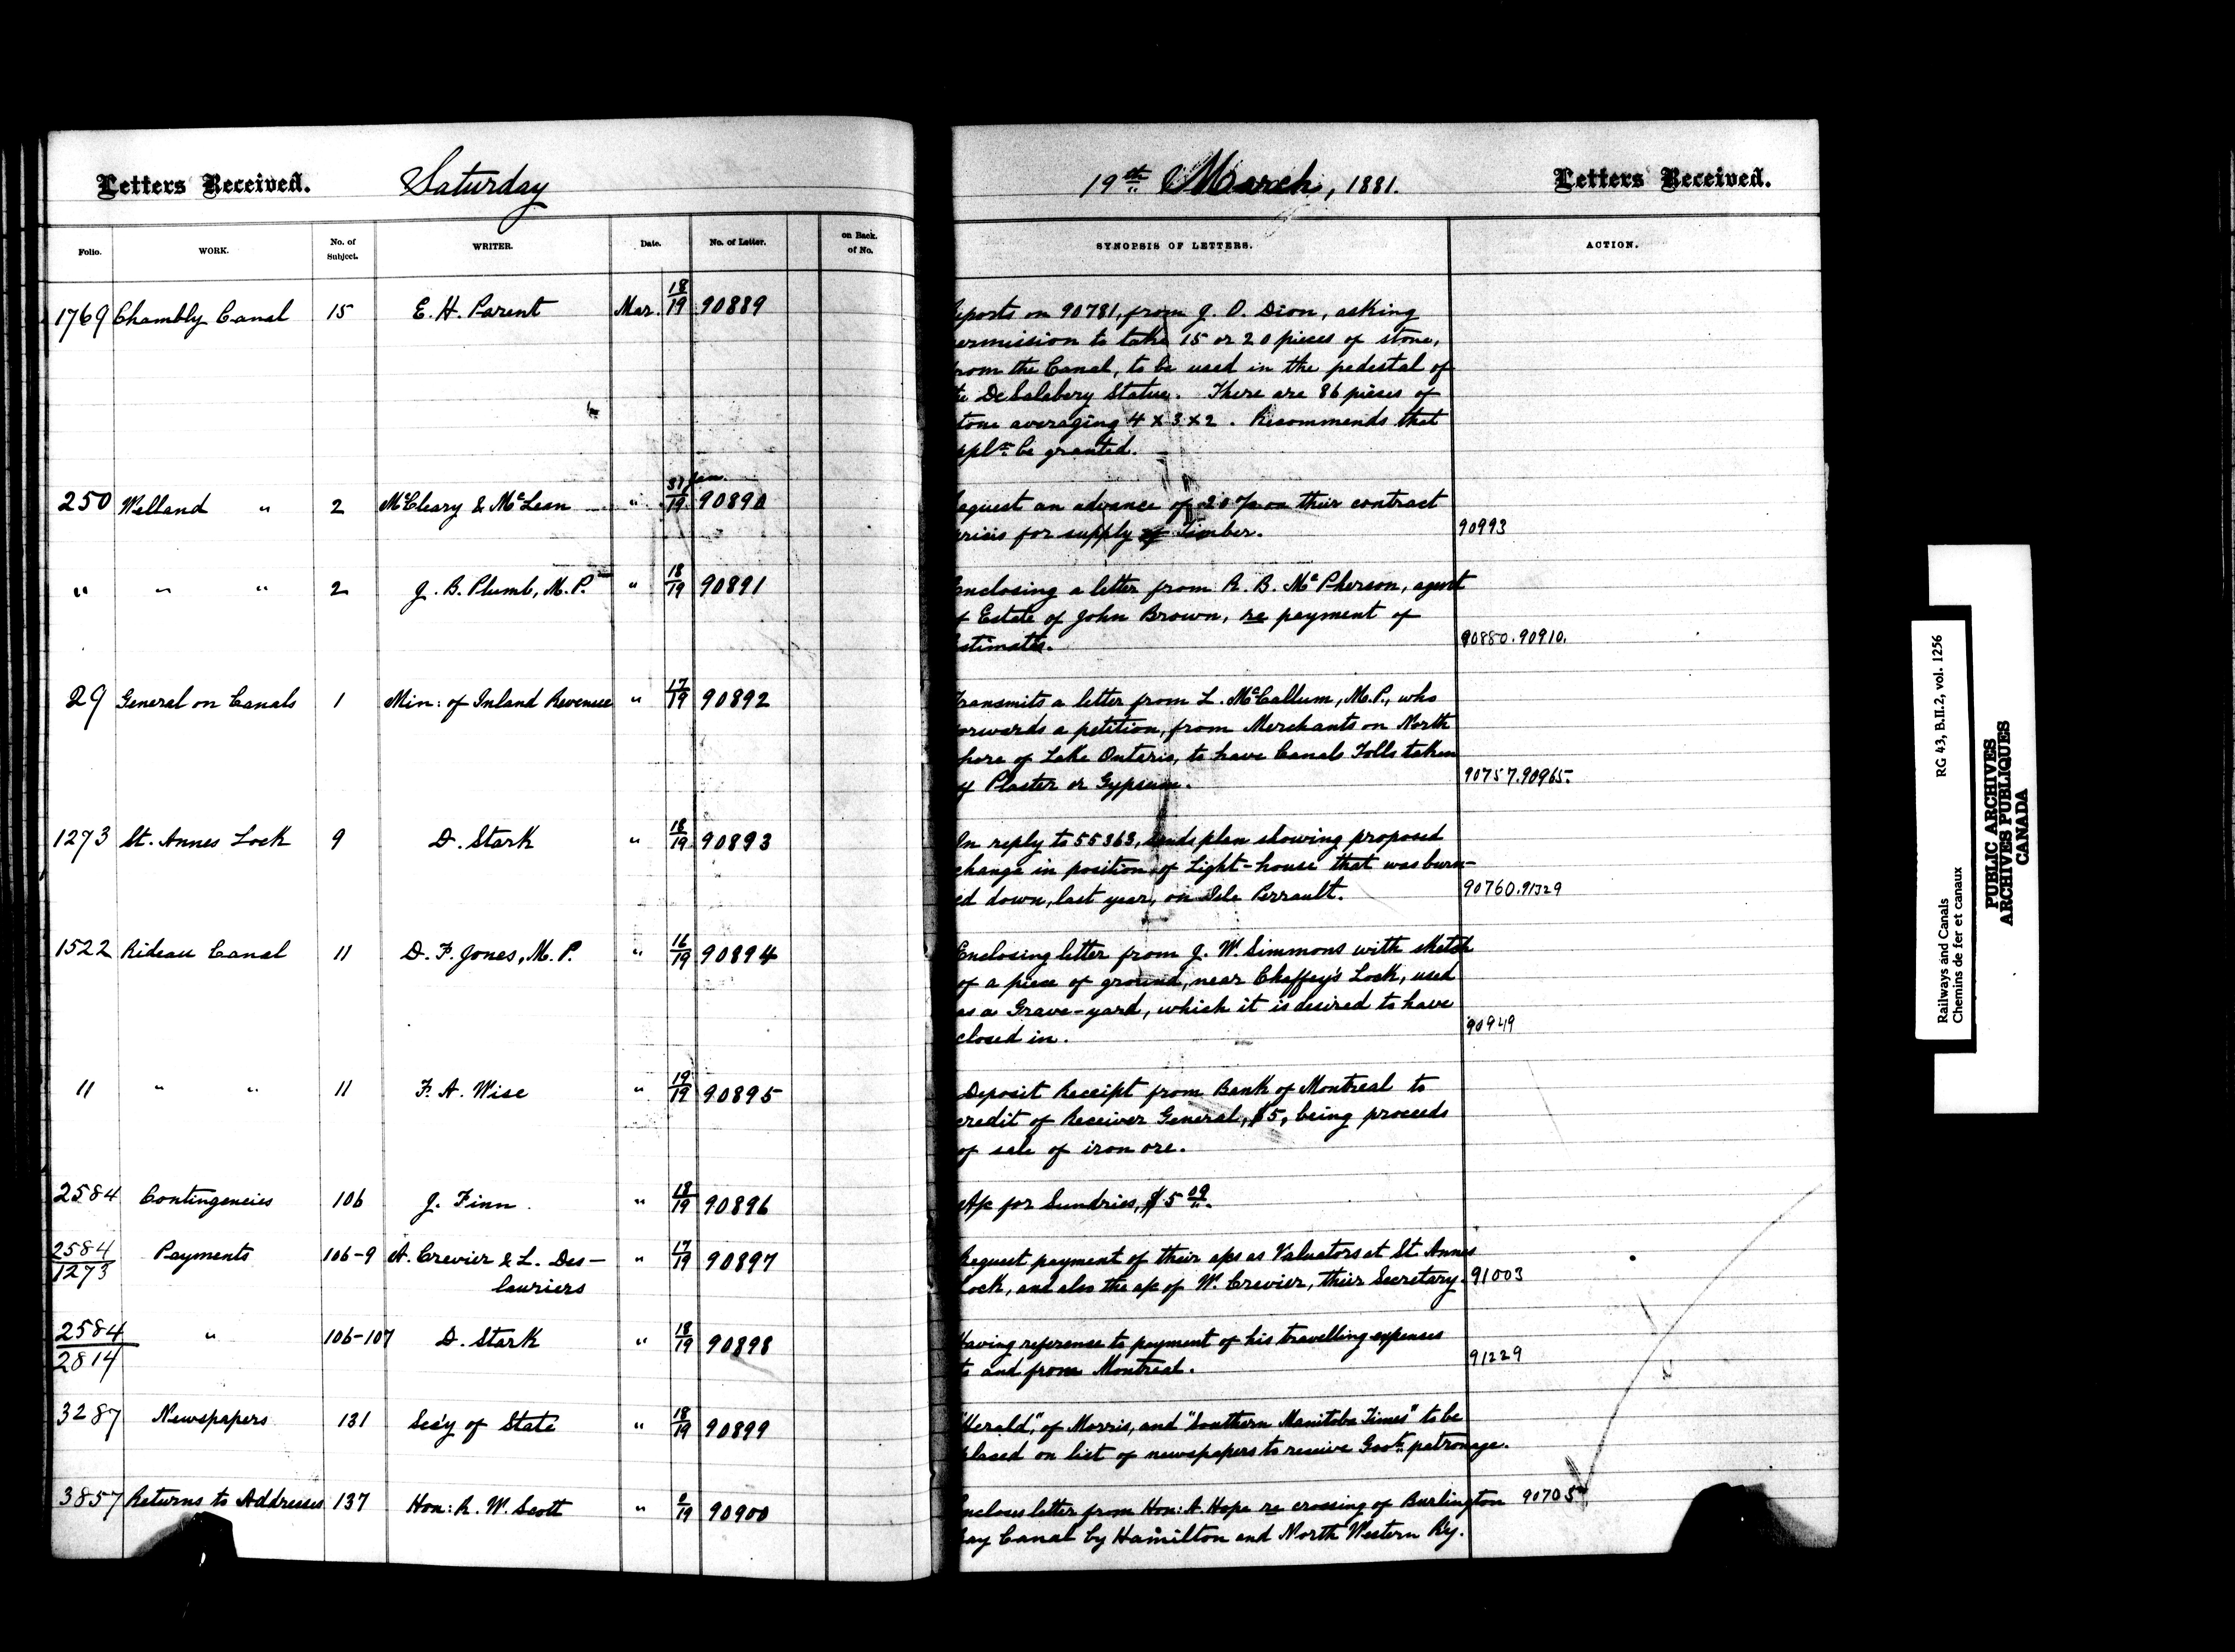 Letters Received.
Saturday
19th March, 1881.
Letters Received.
Folio.
WORK.
No. of Subject.
WRITER.
Date.
No. of Letter.
on Back. of No.
SYNOPSIS OF LETTERS.
ACTION.
1769 Chambly Canal 15 E. H. Parent Mar. 18/19 90889
eports on 90781, from J. O. Dion, asking
ermission to take 15 or 20 pieces of stone,
rom the Canal, to be used in the pedestal of
e De Salabery Statue. There are 86 pieces of
tone averaging 4 x 3 x 2. Recommends that
ppln be granted.
250 Welland " 2 McCleary & McLean " 31 Jan/19 90890
equest an advance of 20% on their contract
rices for supply of Timber. 90993
" " " 2 J. B. Plumb, M.P. " 18/19 90891
nclosing a letter from R. B. McPherson, agent
f Estate of John Brown, re payment of
stimates. 90880.90910.
29 General on Canals 1 Min: of Inland Revenue " 17/19 90892
ransmits a letter from L. McCallum, M.P., who
orwards a petition, from Merchants on North
hore of Lake Ontario, to have Canals Tolls taken
f Plaster or Gypsum. 90757.90965.
1273 St. Annes Lock 9 D. Stark " 18/19 90893
In reply to 55363, sends plan showing proposed
change in position of Light-house that was burn-
ed down, last year, on Isle Perrault. 90760.91329
1522 Rideau Canal 11 D. F. Jones, M.P. " 16/19 90894
Enclosing letter from J. W. Simmons with sketch
of a piece of ground, near Chaffey's Lock, used
as a Grave-yard, which it is desired to have
closed in. 90949
" " " 11 F. A. Wise " 19/19 90895
Deposit Receipt from Bank of Montreal to
credit of Receiver General, $5, being proceeds
of sale of iron ore.
2584 Contingencies 106 J. Finn. " 18/19 90896
A/c for Sundries, $5 09.
2584/1273 Payments 106-9 A. Crevier & L. Des-
lauriers " 17/19 90897
Request payment of their a/cs as Valuators at St. Annes
Lock, and also the a/c of W. Crevier, their Secretary. 91003
2584/2814 " 106-107 D. Stark " 18/19 90898
Having reference to payment of his travelling expenses
to and from Montreal. 91229
3287 Newspapers 131 Sec'y of State " 18/19 90899
"Herald", of Morris, and "Southern Manitoba Times" to be
placed on list of newspapers to receive Govt. patronage.
3857 Returns to Addresses 137 Hon: R. W. Scott " /19 90900
ncloses letter from Hon: A. Hope re crossing of Burlington 90705
ay Canal by Hamilton and North Western Ry.
Railways and Canals RG 43, B.II.2, vol. 1256
Chemins de fer et canaux
PUBLIC ARCHIVES
ARCHIVES PUBLIQUES
CANADA